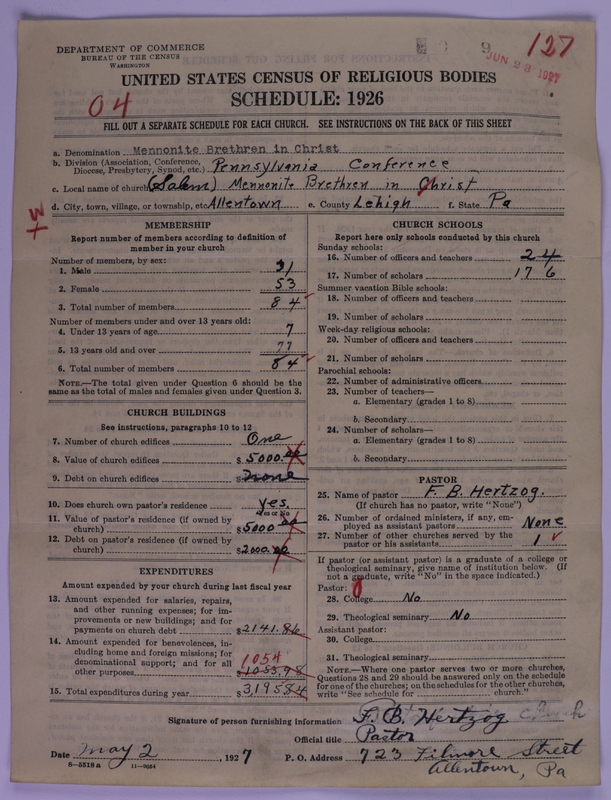 DEPARTMENT OF COMMERCE
BUREAU OF THE CENSUS
WASHINGTON
9
JUN 23 1927
127
UNITED STATES CENSUS OF RELIGIOUS BODIES
SCHEDULE: 1926
04
FILL OUT A SEPARATE SCHEDULE FOR EACH CHURCH. SEE INSTRUCTIONS ON THE BACK OF THIS SHEET
a. Denomination Mennonite Brethren in Christ
b. Division (Association, Conference, Diocese, Presbytery, Synod, etc.) Pennsylvania Conference
c. Local name of church (Salem) Mennonite Brethren in Christ
d. City, town, village, or township, etc. Allentown e. County Lehigh f. State Pa
MEMBERSHIP
Report number of members according to definition of
member in your church
Number of members, by sex:
1. Male 31
2. Female 53
3. Total number of members 84
Number of members under and over 13 years old:
4. Under 13 years of age 7
5. 13 years old and over 77
6. Total number of members 84
NOTE.—The total given under Question 6 should be the
same as the total of males and females given under Question 3.
CHURCH BUILDINGS
See instructions, paragraphs 10 to 12
7. Number of church edifices One
8. Value of church edifices $5000.00
9. Debt on church edifices $None
10. Does church own pastor's residence? yes.
Yes or No
11. Value of pastor's residence (if owned by
church) $5000.00
12. Debt on pastor's residence (if owned by
church) $2000.00
EXPENDITURES
Amount expended by your church during last fiscal year
13. Amount expended for salaries, repairs,
and other running expenses; for im-
provements or new buildings; and for
payments on church debt $2141.86
14. Amount expended for benevolences, in-
cluding home and foreign missions; for
denominational support; and for all
other purposes 1054 $1053.98
15. Total expenditures during year $3195.84
CHURCH SCHOOLS
Report here only schools conducted by this church
Sunday schools:
16. Number of officers and teachers 24
17. Number of scholars 176
Summer vacation Bible schools:
18. Number of officers and teachers
19. Number of scholars
Week-day religious schools:
20. Number of officers and teachers
21. Number of scholars
Parochial schools:
22. Number of administrative officers
23. Number of teachers—
a. Elementary (grades 1 to 8)
b. Secondary
24. Number of scholars—
a. Elementary (grades 1 to 8)
b. Secondary
PASTOR
25. Name of pastor F. B. Hertzog.
(If church has no pastor, write "None")
26. Number of ordained ministers, if any, em-
ployed as assistant pastors None
27. Number of other churches served by the
pastor or his assistants 1
If pastor (or assistant pastor) is a graduate of a college or
theological seminary, give name of institution below. (If
not a graduate, write "No" in the space indicated.)
Pastor: 0
28. College No
29. Theological seminary No
Assistant pastor:
30. College
31. Theological seminary
NOTE.—Where one pastor serves two or more churches,
Questions 28 and 29 should be answered only on the schedule
for one of the churches; on the schedules for the other churches,
write "See schedule for church."
Signature of person furnishing information F. B. Hertzog
Official title Pastor
Date May 2, 1927 P. O. Address 723 Filmore Street
8-5518a 11-9054 Allentown, Pa